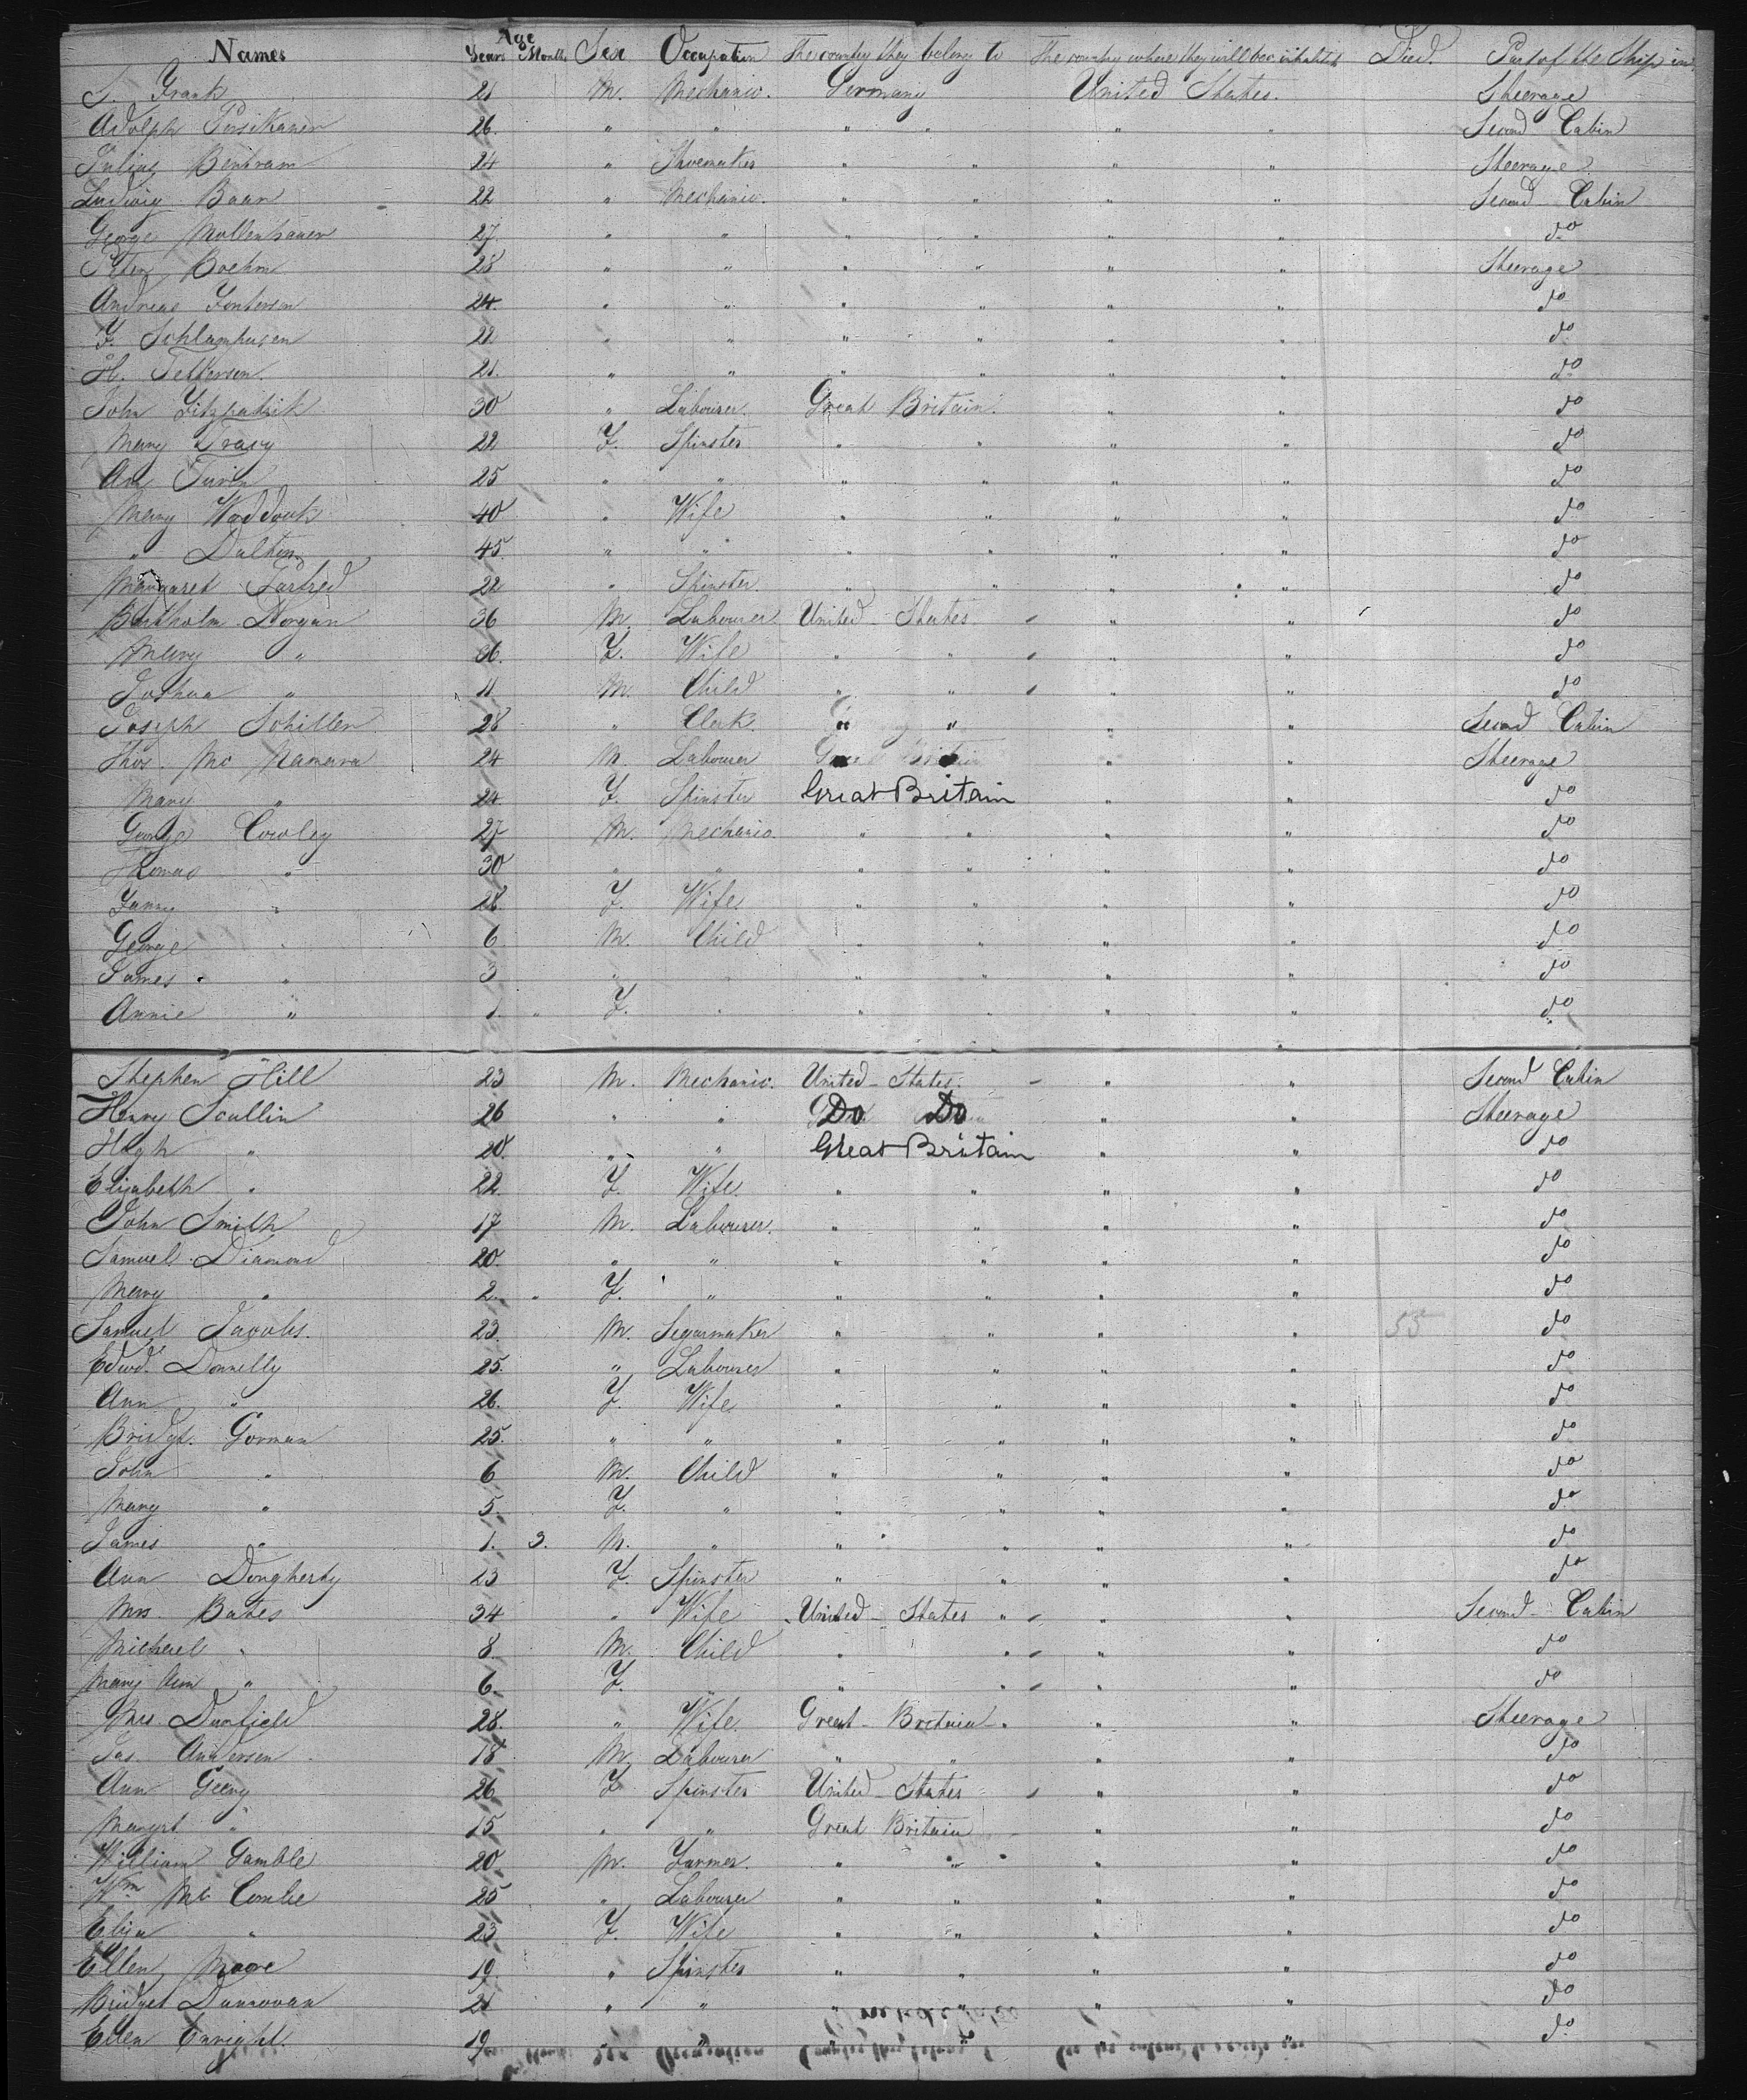 Names Age Years Months Sex Occupation The country they belong to The country where they will become inhabit. Died. Part of the Ship in
S. Frank 21 M. Mechanic. Germany United States. Steerage
Adolph 26. " " " " " " Second Cabin
Julius Bertram 24 " Shoemaker " " " " Steerage
Ludwig Baar 22 " Mechanic. " " " " Second Cabin
George Mollenhauer 27. " " " " " " do
Peter Boehm 28 " " " " " " Steerage
Andreas 24. " " " " " " do
F. Schlamhusen 22 " " " " " " do
H. Tetterson 21. " " " " " " do
John Fitzpatrik 30 " Labourer. Great Britain. " " do
Mary Tracy 22 F. Spinster " " " " do
Ann 25 " " " " " " do
Mary Waddock 40 " Wife " " " " do
" Dalton 45. " " " " " " do
Margaret 22 " Spinster. " " " " do
Bartholm Dorgan 36 M. Labourer United States " " do
Mary " 36. F. Wife " " " " do
Joshua " 11 M. Child " " " " do
Joseph Schiller 28 " Clerk. " " " " Second Cabin
Thos. Mc Namara 24 M. Labourer Great Britain " " Steerage
Mary " 24 F. Spinster Great Britain " " do
George Cowley 27 M. Mechanic. " " " " do
Thomas " 30 " " " " " " do
Fanny " 28. F. Wife " " " " do
George " 6 M. Child " " " " do
James " 3 " " " " " " do
Annie " 1. " F. " " " " " do
Stephen Hill 23 M. Mechanic. United States. " " Second Cabin
Henry Scullin 26 " " Do Do " " Steerage
Hugh " 28. " " Great Britain " " do
Elisabeth " 22 F. Wife. " " " " do
John Smith 17 M. Labourer. " " " " do
Samuel Diamond 20. " " " " " " do
Mary " 2. " F. " " " " " do
Samuel Jacobs. 23. M. Segarmaker " " " " 55 do
Edwd. Donnelly 25. " Labourer " " " " do
Ann " 26. F. Wife " " " " do
Bridgt. Gorman 25. " " " " " " do
John " 6 M. Child " " " " do
Mary " 5. F. " " " " " do
James " 1. 3. M. " " " " " do
Ann Dougherty 23 F. Spinster " " " " do
Mrs. Bates 34 " Wife United States " " Second Cabin
Michael " 8. M. Child " " " " do
Mary Ann " 6. F. " " " " " do
Mrs. Danfield 28. " Wife. Great Britain " " Steerage
Jas. Anderson 18 M. Labourer " " " " do
Ann Geeny 26 F. Spinster United States " " do
Margrt " 15 " " Great Britain " " do
William Gamble 20 M. Farmer. " " " " do
Wm Mc Combe 25 " Labourer " " " " do
Eliza " 23 F. Wife " " " " do
Ellen Moore 19. " Spinster " " " " do
Bridget Dunnovan 21 " " " " " " do
Ellen Enright. 19 " " " " " " do